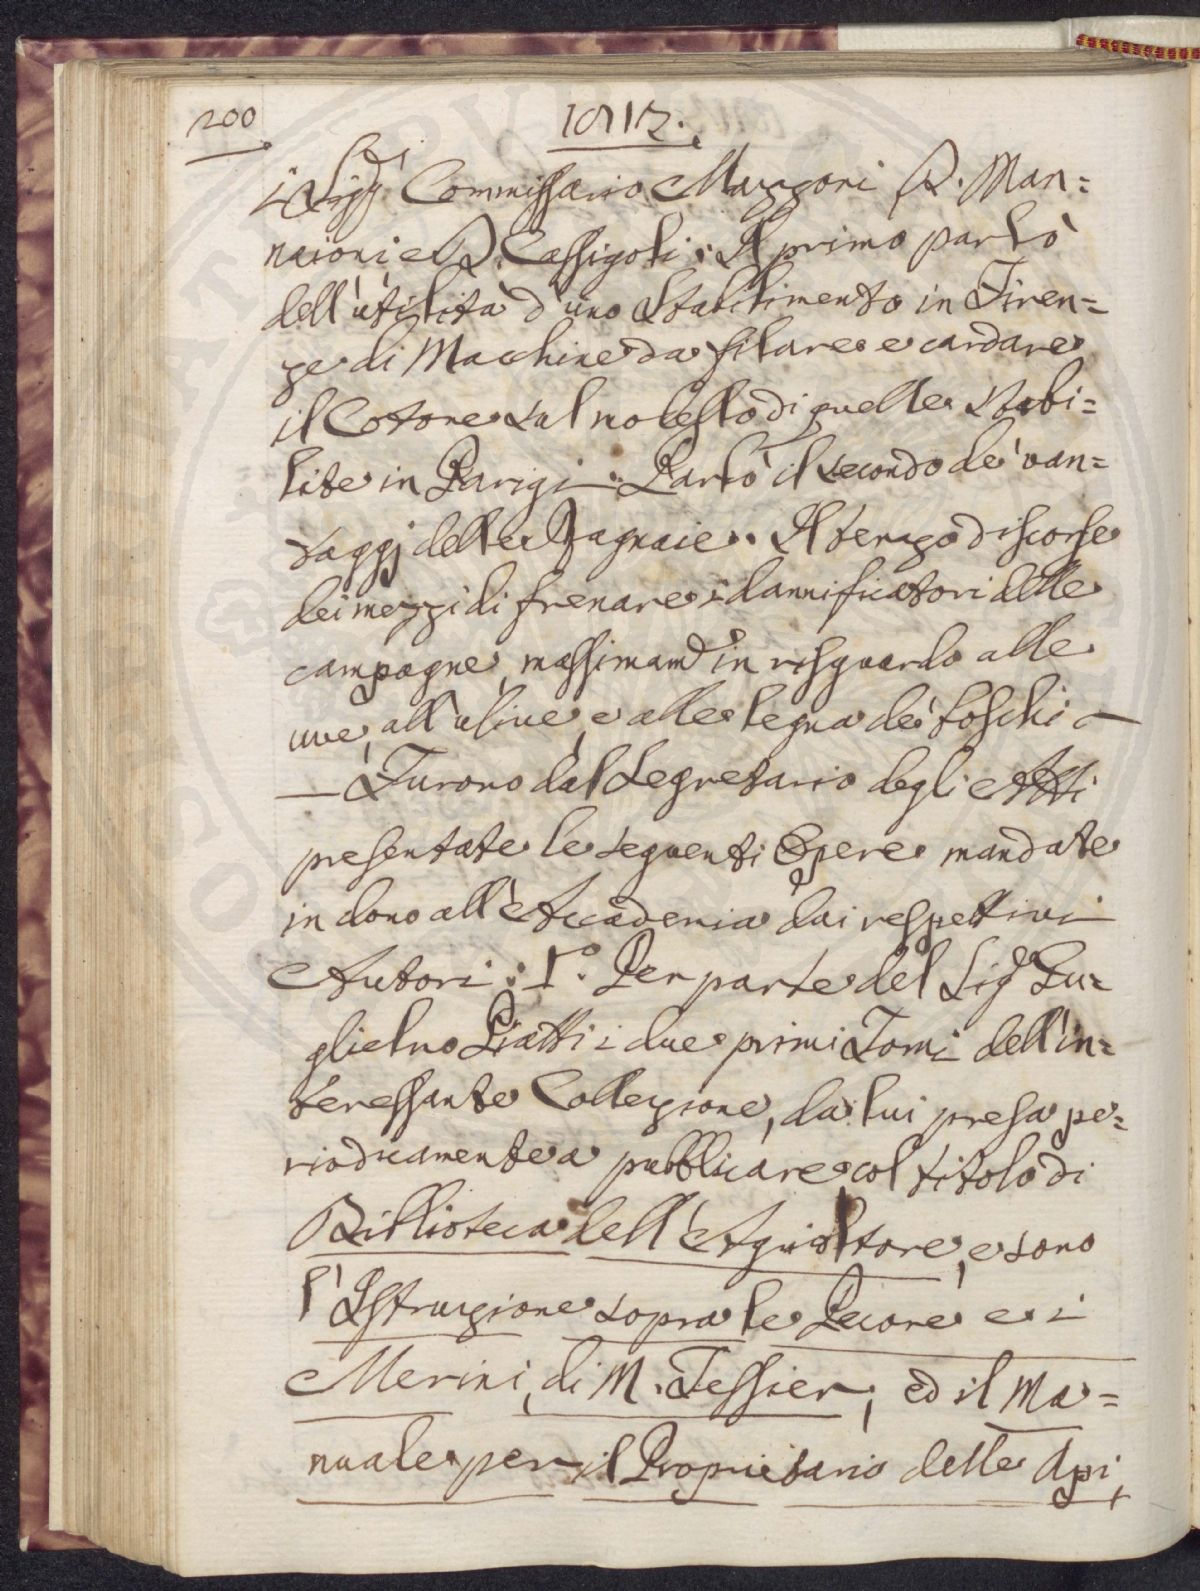 200
1812.
i Sigg.ri Commissario Mazzoni D. Man=
naioni e D. Cassigoli: Il primo parlò
dell'utilità d'uno Stabilimento in Firen=
ze di Macchine da filare e cardare
il Cotone sul modello di quelle stabi=
lite in Parigi: Parlò il secondo de' van=
taggj delle Ragnaie. Il terzo discorse
dei mezzi di frenare i dannificatori delle
campagne, massimam.e in risguardo alle
uve, all'ulive, e alle legna de' boschi —
— Furono dal Segretario degli Atti
presentate le seguenti Opere mandate
in dono all'Accademia dai respettivi
Autori: 1.° Per parte del Sig.r Gu=
glielmo Piatti i due primi Tomi dell'in=
teressante Collezione, da lui presa pe=
riodicamente a pubblicare col titolo di
Biblioteca dell'Agricoltore, e sono
l'Istruzione sopra le Pecore e i
Merini, di M. Tessier, ed il Ma=
nuale per il Proprietario delle Api,